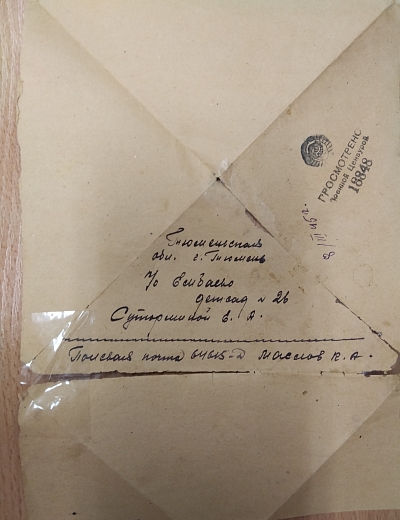 ПРОСМОТРЕНО
Военной Цензурой
18848
8/III 45 г.
Тюменьская
обл. г. Тюмень
п/о Ембаево
детсад № 26
Сутормилой Е. А.
Полевая почта 64645-Д Маслов К. А.